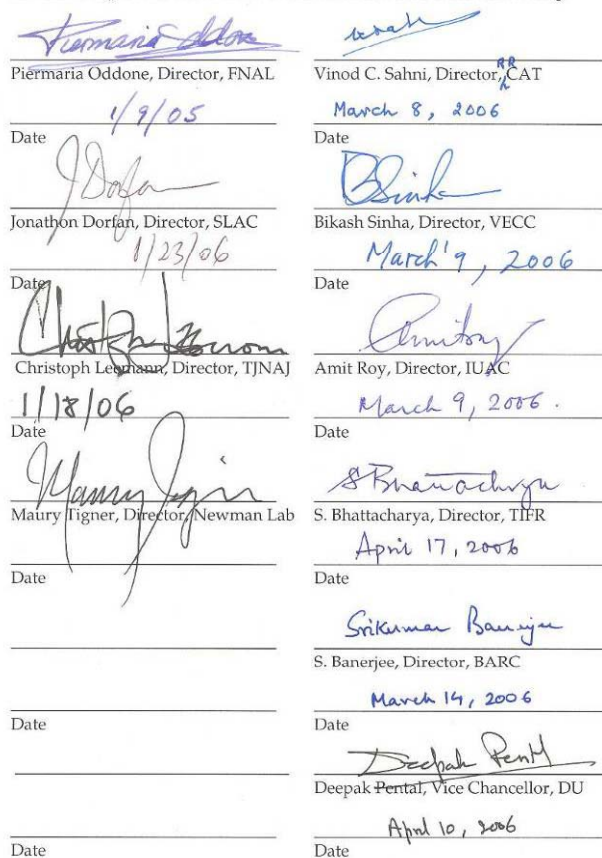 Piermaria Oddone
Piermaria Oddone, Director, FNAL
1/9/05
Date
J Dorfan
Jonathon Dorfan, Director, SLAC
1/23/06
Date
Christoph Leemann, Director, TJNAJ
1/18/06
Date
Maury Tigner
Maury Tigner, Director, Newman Lab
Date
Date
Date
Vinod C. Sahni, Director, RRCAT
March 8, 2006
Date
B Sinha
Bikash Sinha, Director, VECC
March 9, 2006
Date
Amit Roy, Director, IUAC
March 9, 2006.
Date
S Bhattacharya
S. Bhattacharya, Director, TIFR
April 17, 2006
Date
Srikumar Banerjee
S. Banerjee, Director, BARC
March 14, 2006
Date
Deepak Pental
Deepak Pental, Vice Chancellor, DU
April 10, 2006
Date